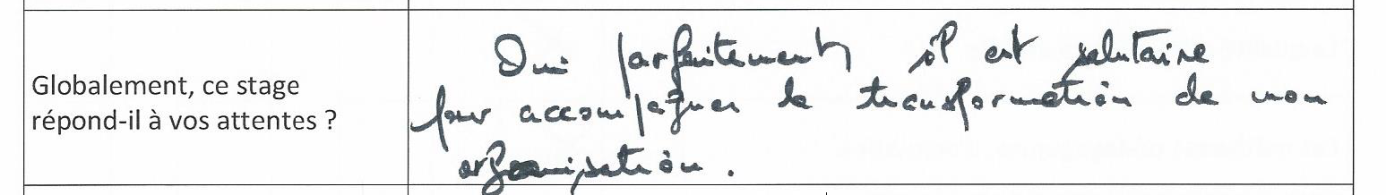 Globalement, ce stage
répond-il à vos attentes ?
Oui parfaitement il est salutaire
pour accompagner la transformation de mon
organisation.